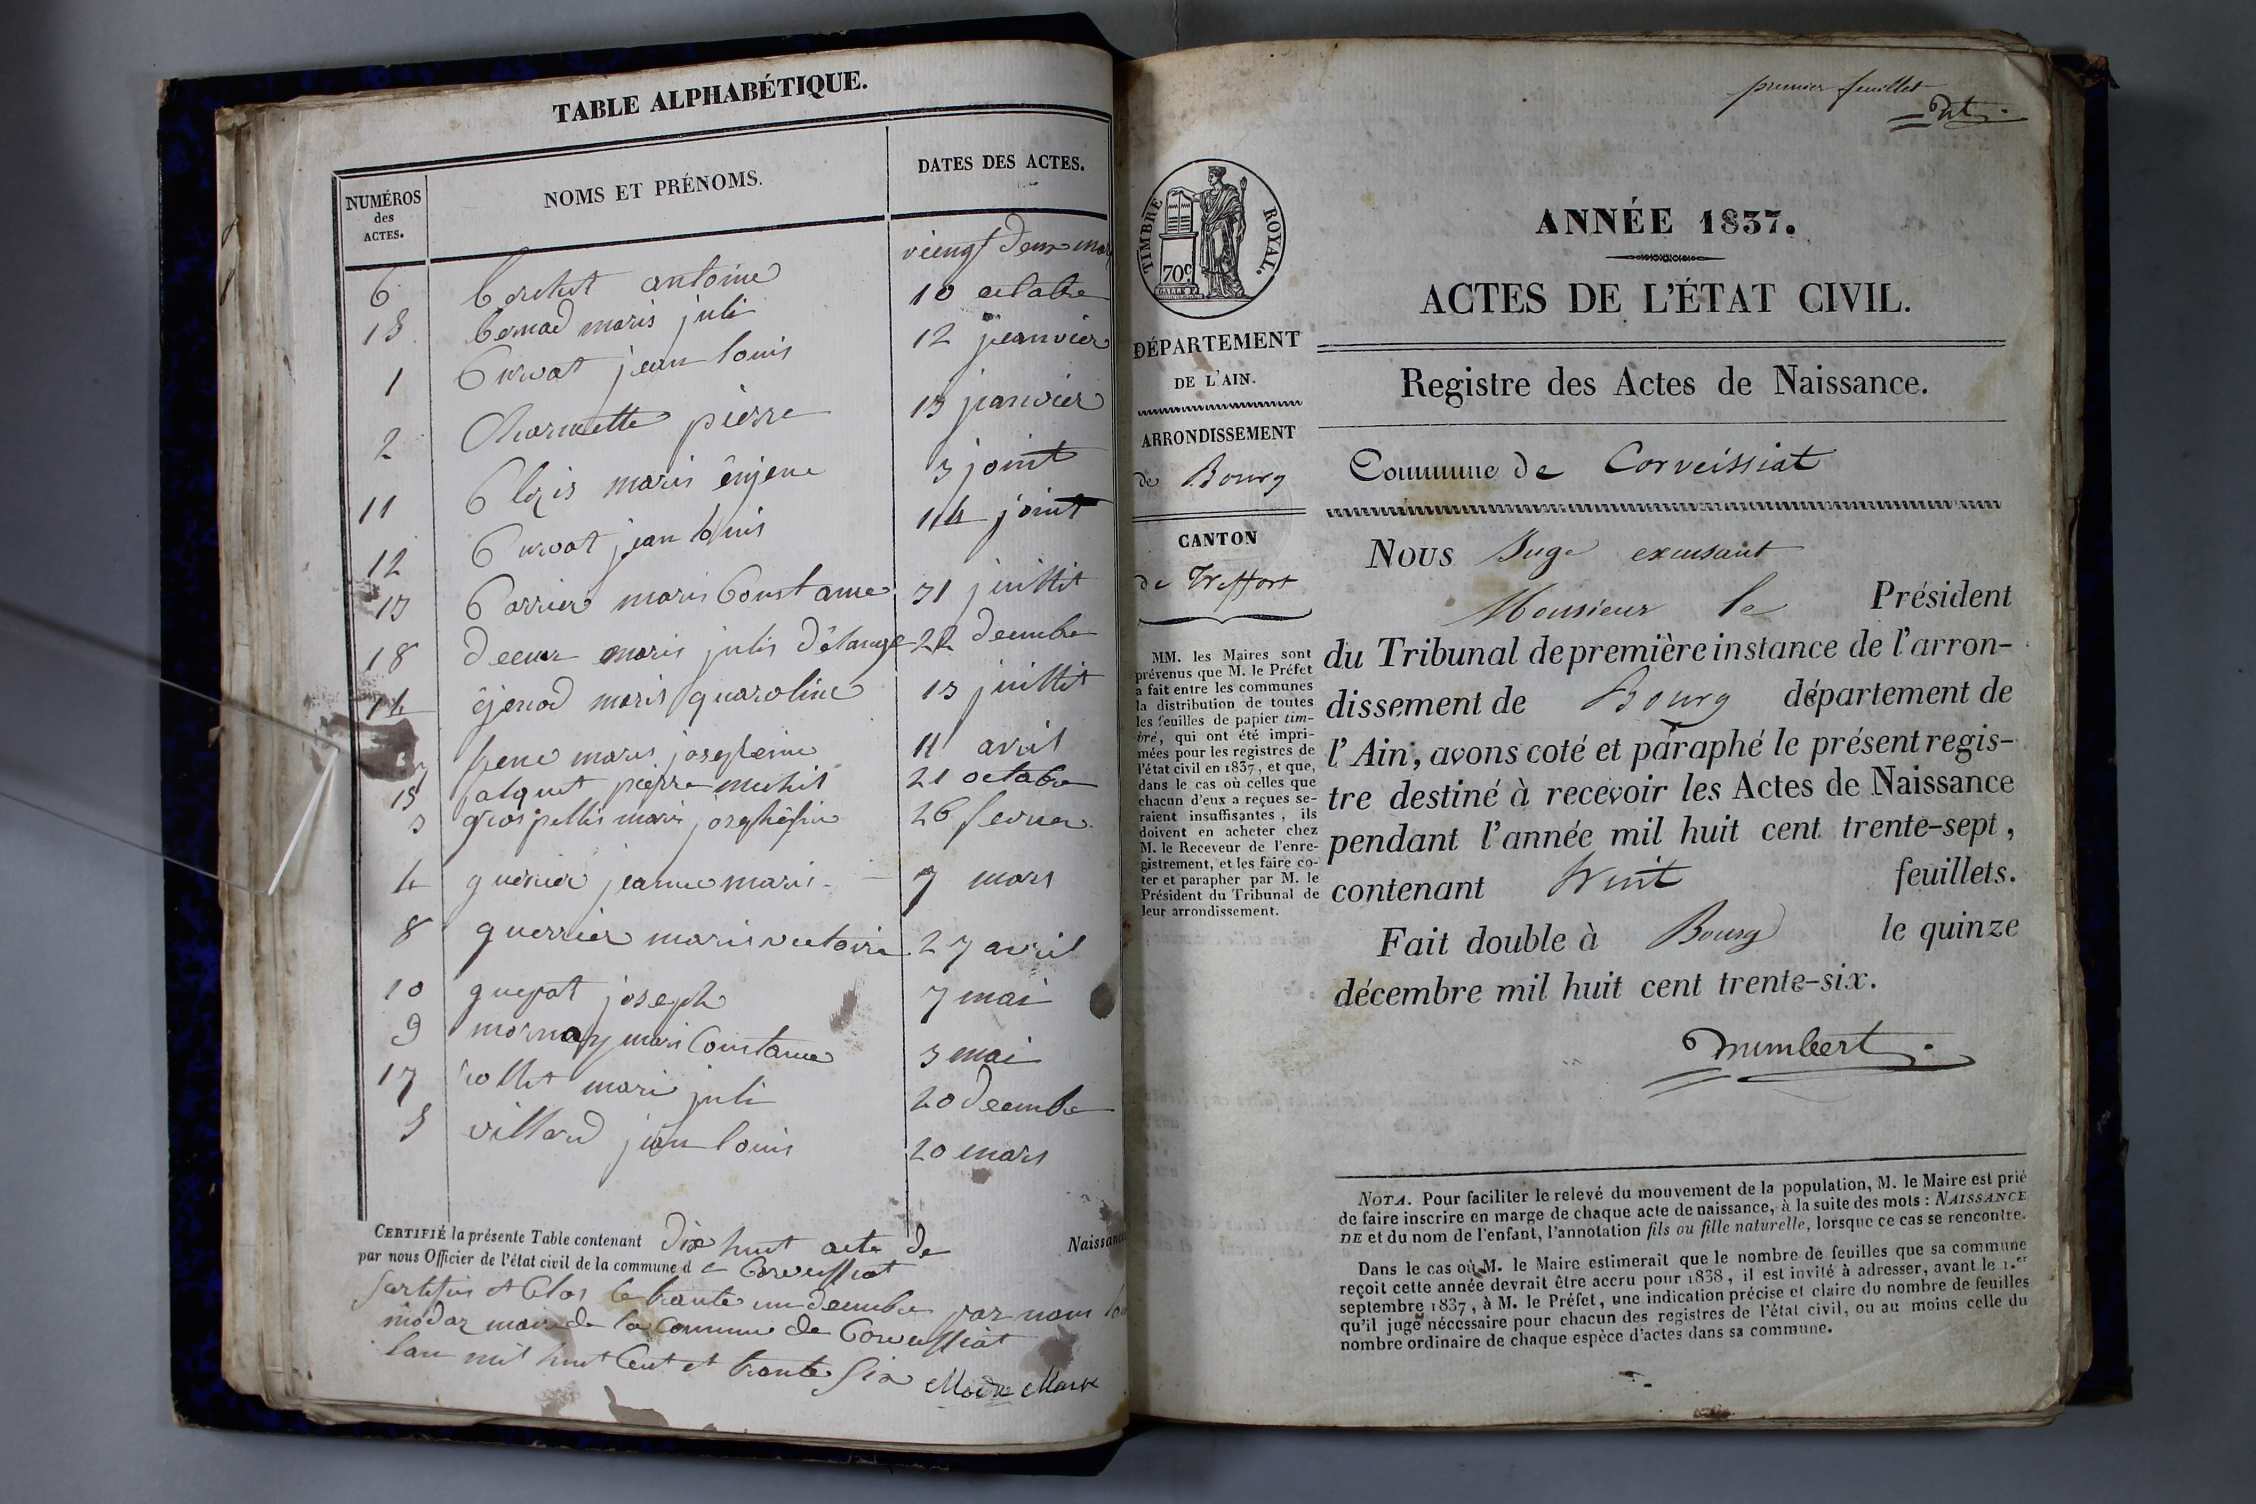 TABLE ALPHABÉTIQUE.
NUMÉROS
des
ACTES.
NOMS ET PRÉNOMS.
DATES DES ACTES.
6 antoine vieng deux mars
13 bernad maris juli 10 octobre
1 Curvat jean louis 12 jeanvier
2 Charnette pierre 13 jianvier
11 maris ênjene 3 joint
12 Curvat jean louis 14 joint
13 Carrier maris Constance 31 juillit
18 maris julis 22 decembre
14 maris quaroline 13 juillit
maris 11 avril
15 pierre 21 octobre
3 maris 26 fevrier
4 guerier jeanne maris 7 mars
8 guerrier maris victoire 27 avril
10 joseph 7 mai
9 mornay mari Constance 3 mai
17 rollet mari juli 20 decembre
5 villard jean louis 20 mars
CERTIFIÉ la présente Table contenant dix huit acte de Naissance
par nous Officier de l'état civil de la commune d e Corveissiat
et Clos le trante un decembre par nous
maire de la Commune de Corveissiat
lan mil huit Cent et trante six
premier feuillet
TIMBRE ROYAL.
70c
ANNÉE 1837.
ACTES DE L'ÉTAT CIVIL.
Registre des Actes de Naissance.
DÉPARTEMENT
DE L'AIN.
ARRONDISSEMENT
de Bourg
CANTON
de Treffort
MM. les Maires sont
prévenus que M. le Préfet
a fait entre les communes
la distribution de toutes
les feuilles de papier tim-
bré, qui ont été impri-
mées pour les registres de
l'état civil en 1837, et que,
dans le cas où celles que
chacun d'eux a reçues se-
raient insuffisantes, ils
doivent en acheter chez
M. le Receveur de l'enre-
gistrement, et les faire co-
ter et parapher par M. le
Président du Tribunal de
leur arrondissement.
Commune de Corveissiat
Nous Juge excusant
Monsieur le Président
du Tribunal de première instance de l'arron-
dissement de Bourg département de
l'Ain, avons coté et paraphé le présent regis-
tre destiné à recevoir les Actes de Naissance
pendant l'année mil huit cent trente-sept,
contenant huit feuillets.
Fait double à Bourg le quinze
décembre mil huit cent trente-six.
NOTA. Pour faciliter le relevé du mouvement de la population, M. le Maire est prié
de faire inscrire en marge de chaque acte de naissance, à la suite des mots : NAISSANCE
DE et du nom de l'enfant, l'annotation fils ou fille naturelle, lorsque ce cas se rencontre.
Dans le cas où M. le Maire estimerait que le nombre de feuilles que sa commune
reçoit cette année devrait être accru pour 1838, il est invité à adresser, avant le 1.er
septembre 1837, à M. le Préfet, une indication précise et claire du nombre de feuilles
qu'il juge nécessaire pour chacun des registres de l'état civil, ou au moins celle du
nombre ordinaire de chaque espèce d'actes dans sa commune.